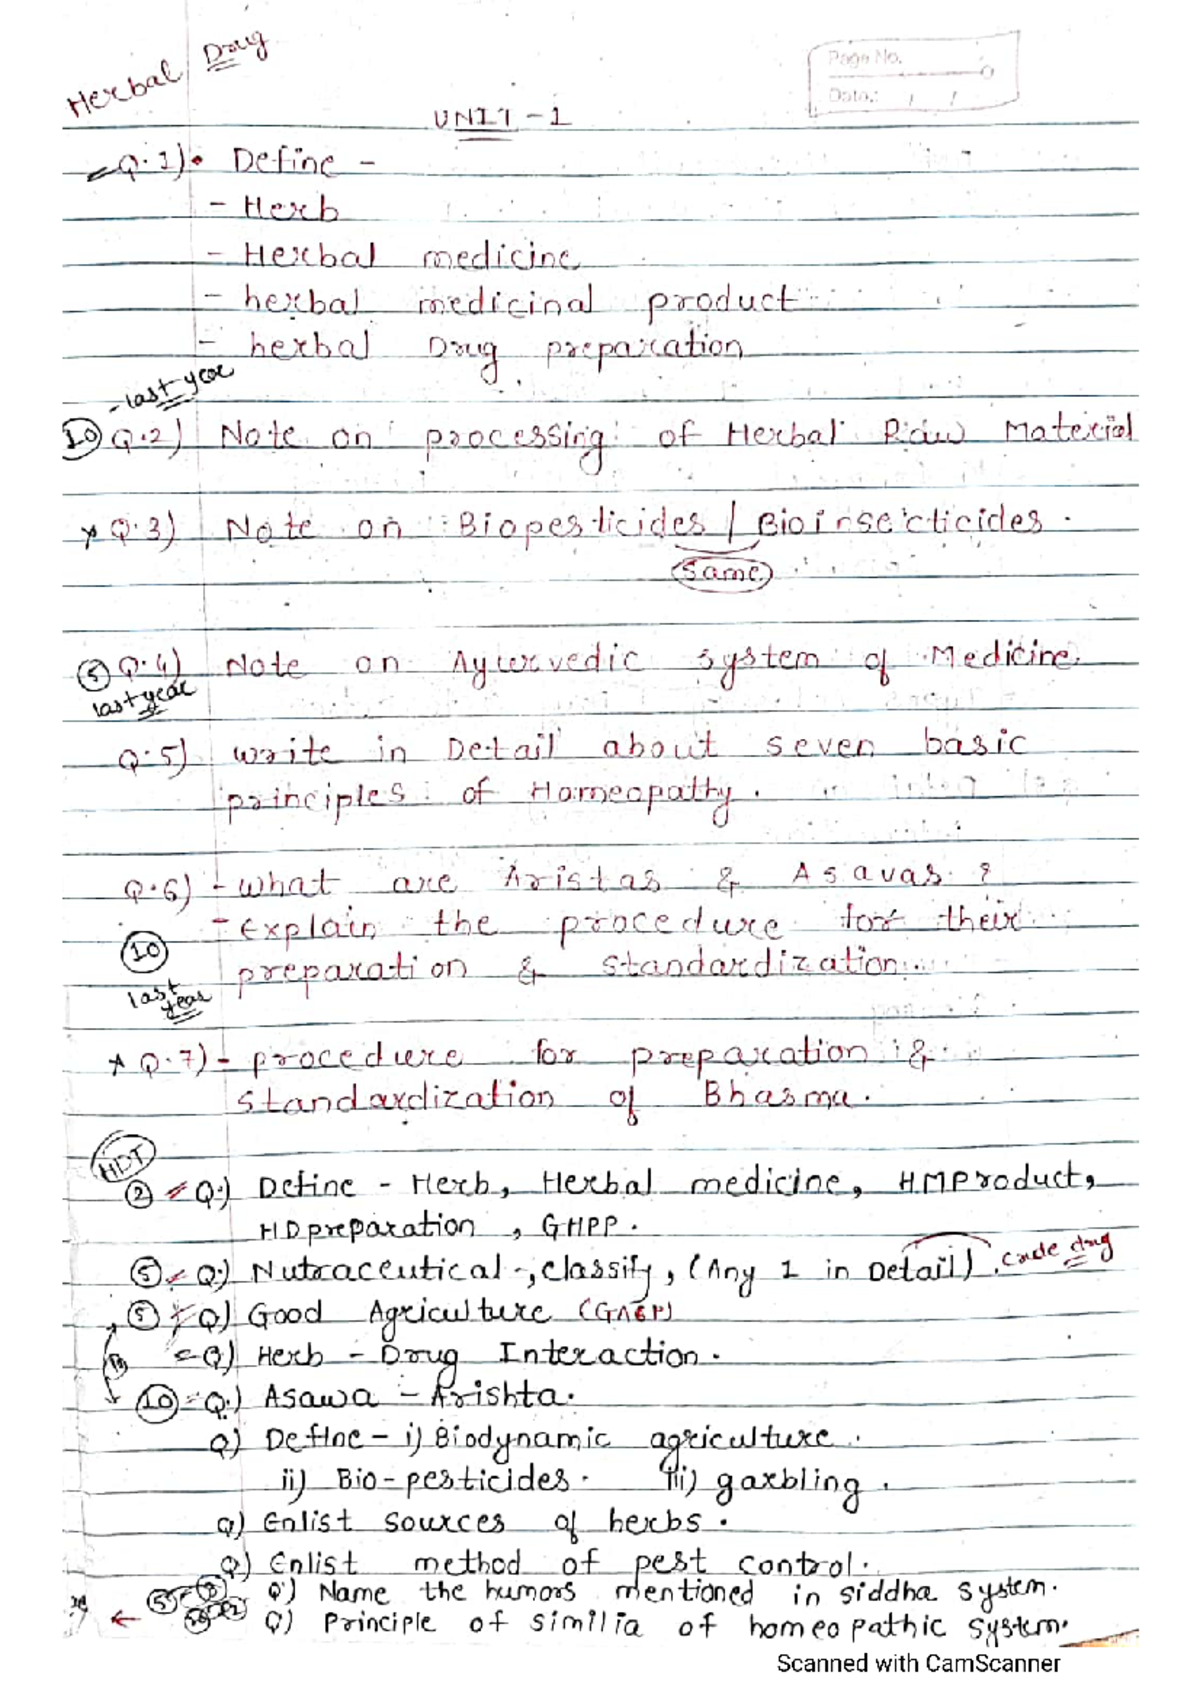 Herbal Drug
Page No.
Date:
UNIT - 1
Q.1) • Define -
- Herb
- Herbal medicine
- herbal medicinal product
- herbal Drug preparation
- last year
10 Q.2) Note on processing of Herbal Raw Material
Q.3) Note on Biopesticides / Bioinsecticides.
same
5 Q.4) Note on Ayurvedic system of Medicine.
last year
Q.5) write in Detail about seven basic
principles of Homeopathy.
Q.6) - what are Aristas & Asavas ?
- Explain the procedure for their
10
preparation & standardization.
last year
Q.7) - procedure for preparation &
standardization of Bhasma.
HDT
2 Q.) Define - Herb, Herbal medicine, HMProduct,
HDpreparation, GHPP.
5 Q.) Nutraceutical -, classify, (Any 1 in Detail). crude drug
5 Q) Good Agriculture (GACP)
Q) Herb - Drug Interaction.
10 Q.) Asawa - Arishta.
Q) Define - i) Biodynamic agriculture.
ii) Bio-pesticides. iii) garbling.
Q) Enlist sources of herbs.
Q) Enlist method of pest control.
Q.) Name the humors mentioned in siddha system.
Q.) Principle of similia of homeopathic system.
Scanned with CamScanner